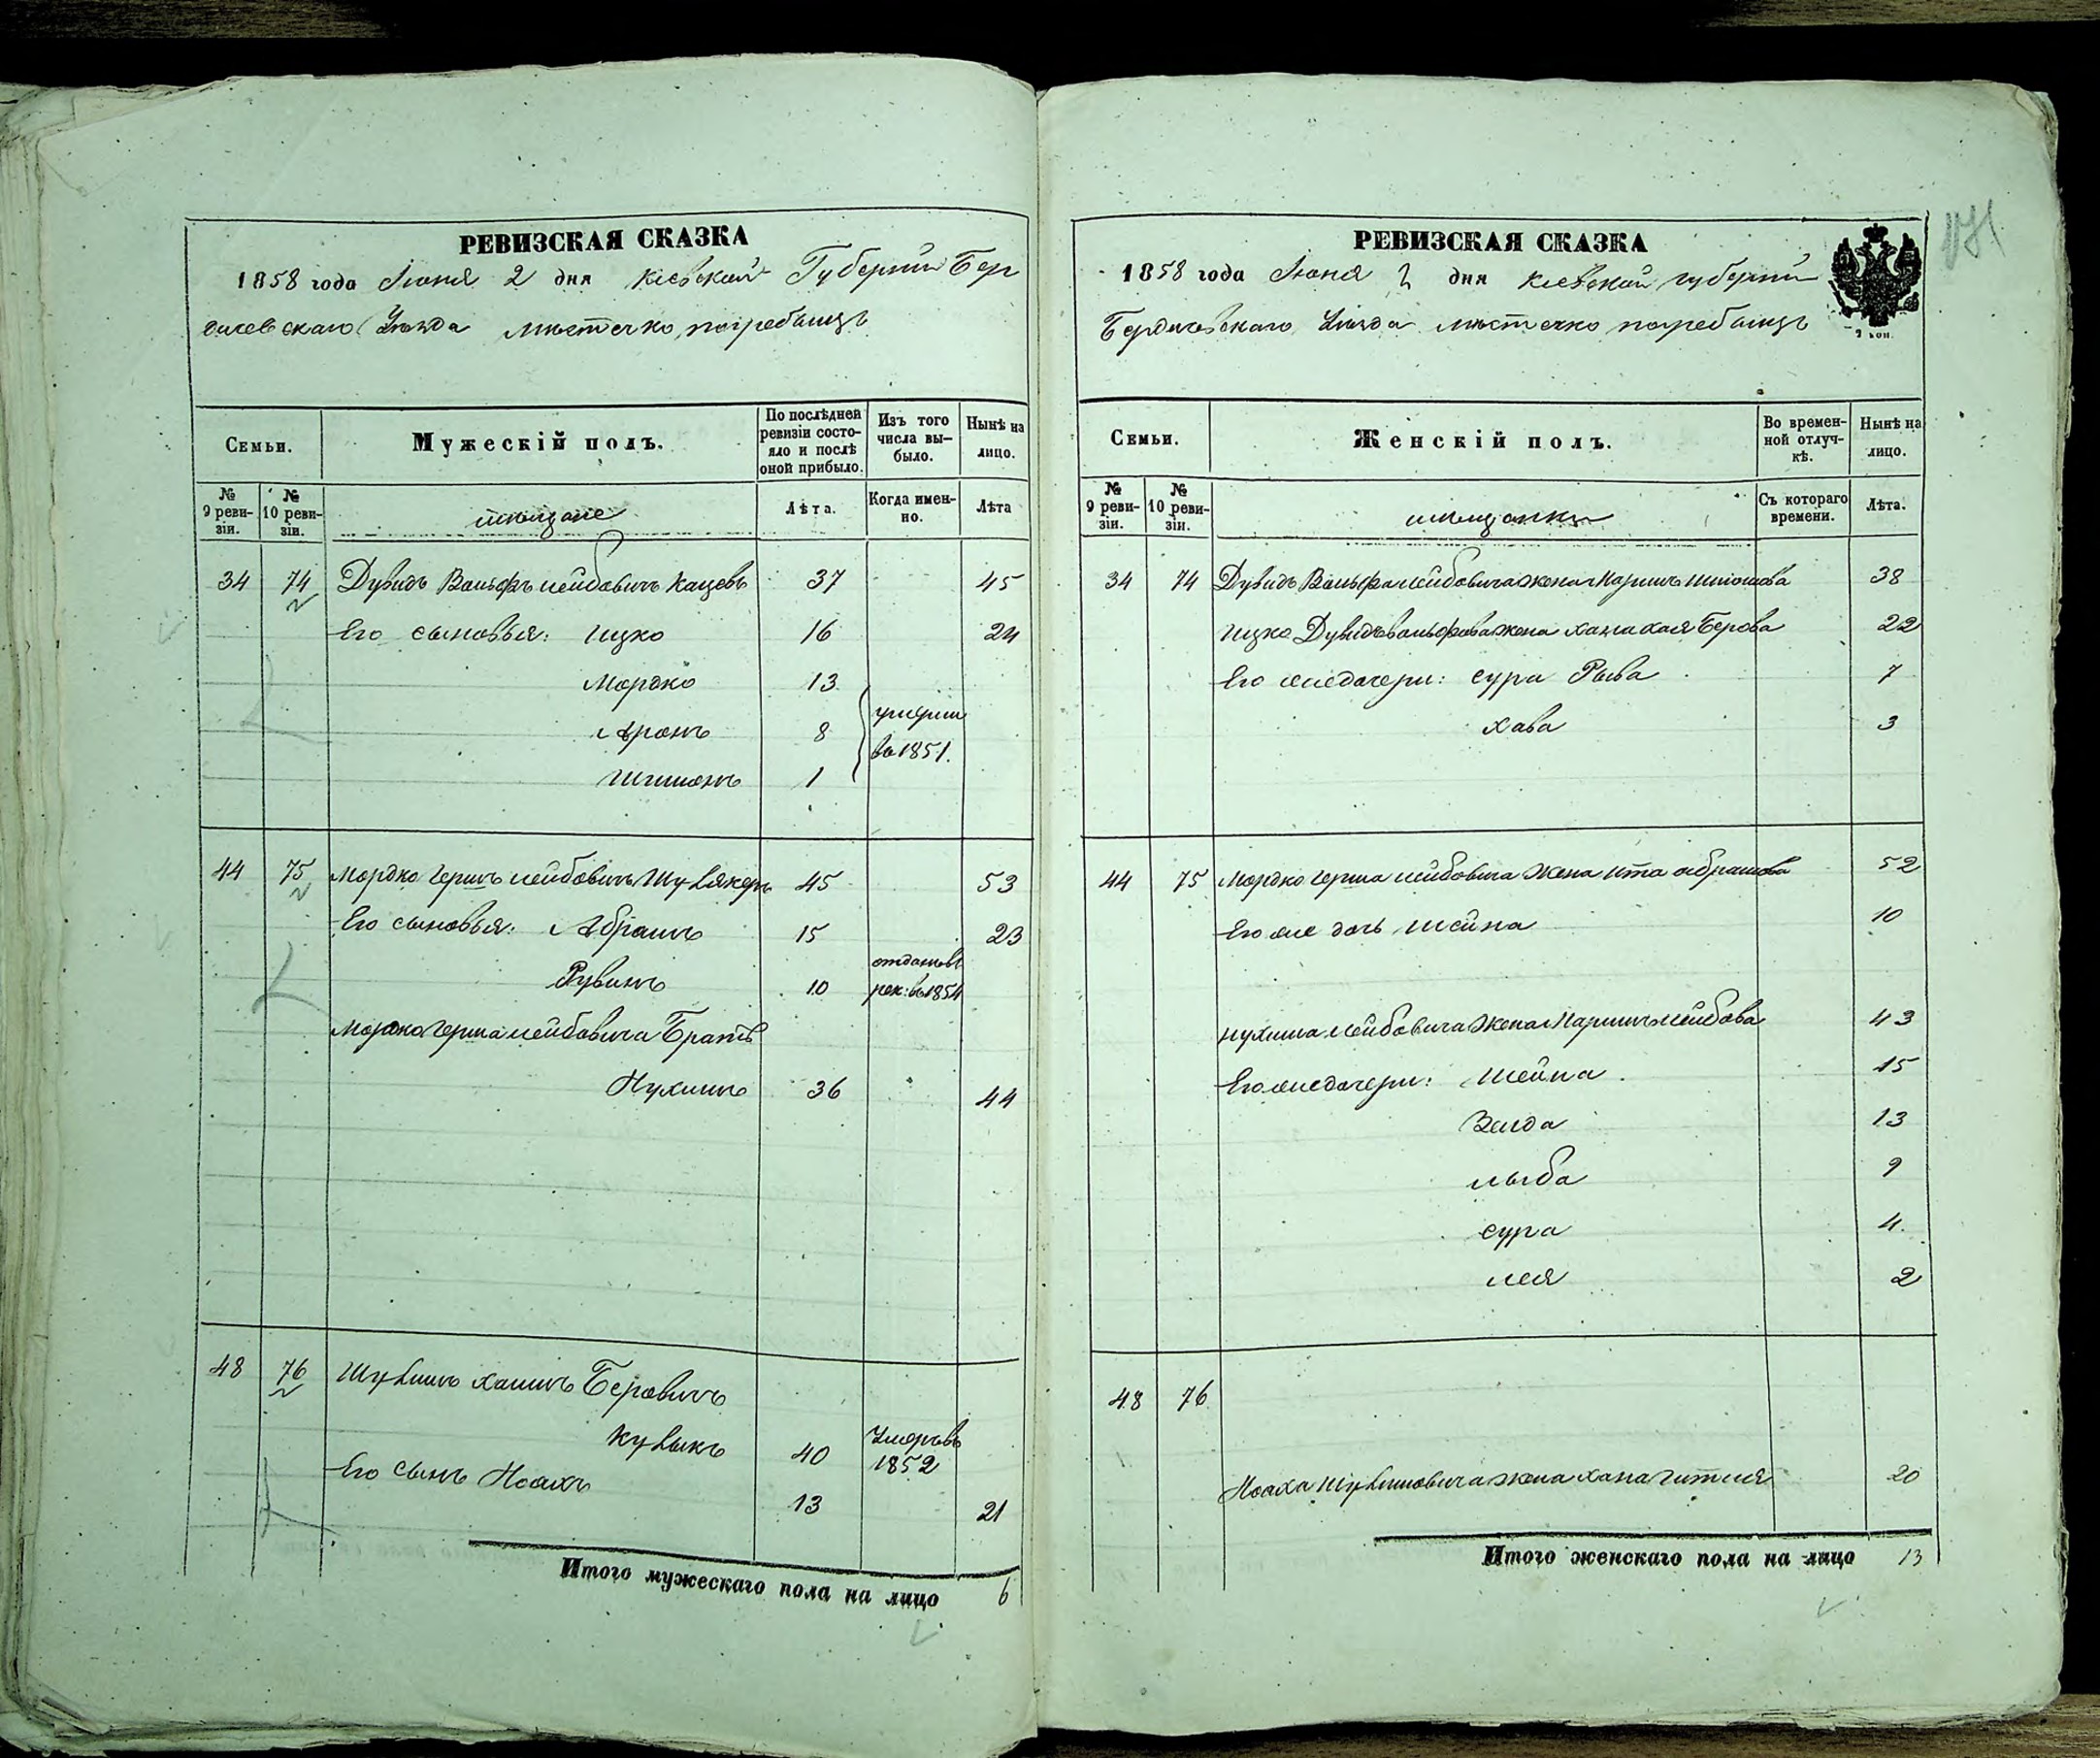 РЕВИЗСКАЯ СКАЗКА
1858 года Июня 2 дня Кіевской Губерніи Бер
дичевскаго Уѣзда мѣстечко погребищъ
Семьи.
Мужескій полъ.
По послѣдней ревизіи состояло и послѣ оной прибыло.
Изъ того числа вы-было.
Нынѣ на лицо.
№ 9 реви-зіи.
№ 10 реви-зіи.
мѣщане
Лѣта.
Когда имен-но.
Лѣта
34 74 Дувидъ Вольфъ Лейбовичъ Кацевъ 37 45
Его сыновья: Ицко 16 24
Мордко 13
Аронъ 8 умерли
въ 1851.
Шимонъ 1
44 75 Мордко Гершъ Лейбовичъ 45 53
Его сыновья: Абрамъ 15 23
Рувинъ 10 отданъ въ
рек: въ 1854
Мордко Герша Лейбовича Братъ
Нухимъ 36 44
48 76 Шулимъ Хаимъ Беровичъ
Кулыкъ 40 Умеръ въ
1852
Его сынъ Ноахъ 13 21
Итого мужескаго пола на лицо 6
РЕВИЗСКАЯ СКАЗКА
1858 года Июня 2 дня Кіевской губерніи
Бердичевскаго Уѣзда мѣстечко погребищъ
2 коп.
Семьи.
Женскій полъ.
Во времен-ной отлуч-кѣ.
Нынѣ на лицо.
№ 9 реви-зіи.
№ 10 реви-зіи.
мѣщанки
Съ котораго времени.
Лѣта.
34 74 Дувидъ Вольфа Лейбовича жена 38
Ицко Дувидъ Вольфова жена Хана Хая Берова 22
Его же дочери: Сура Рыва 7
Хава 3
44 75 Мордко Герша Лейбовича жена Ита Абрамова 52
Его же дочь Шейна 10
Нухима Лейбовича жена Лейбова 43
Его же дочери: Шейна 15
Зелда 13
Лыба 9
Сура 4
Лея 2
48 76
Ноаха Шулимовича жена Хана Гитля 20
Итого женскаго пола на лицо 13